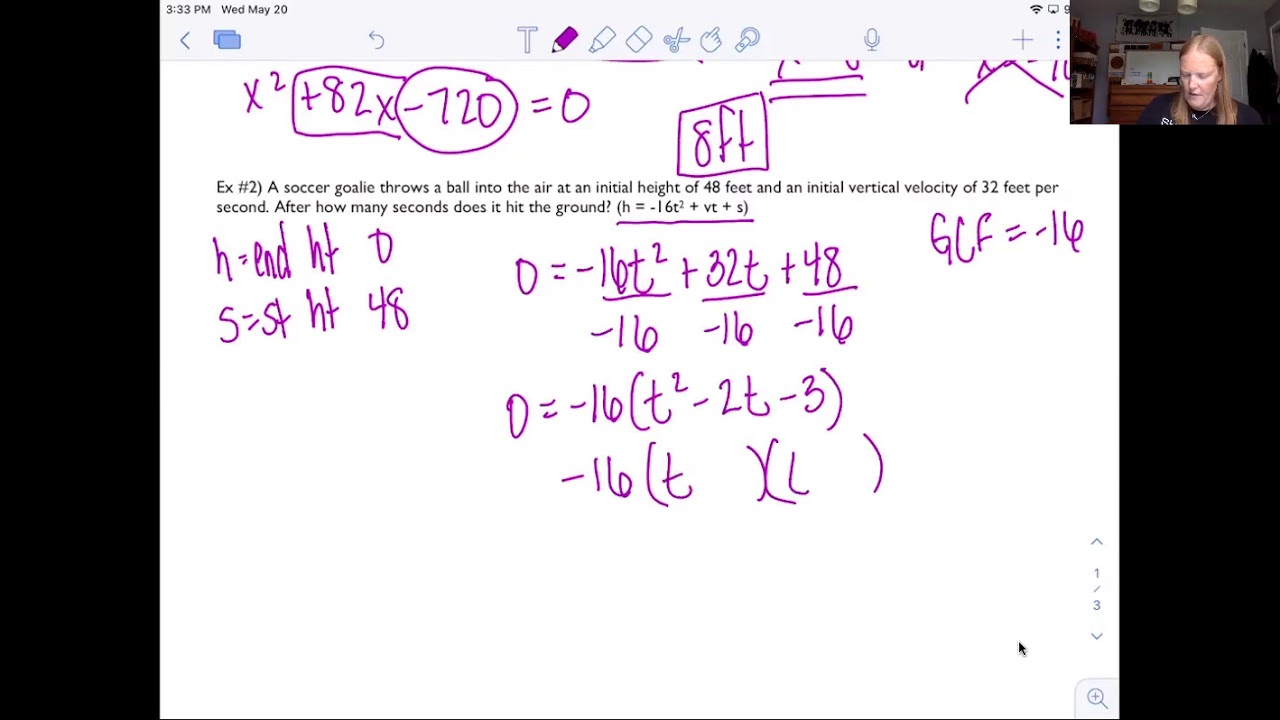 3:33 PM Wed May 20
x² +82x -720 = 0
8ft
Ex #2) A soccer goalie throws a ball into the air at an initial height of 48 feet and an initial vertical velocity of 32 feet per
second. After how many seconds does it hit the ground? (h = -16t² + vt + s)
h = end ht 0
s = st ht 48
GCF = -16
0 = -16t² + 32t + 48
-16 -16 -16
0 = -16(t² - 2t - 3)
-16(t )(t )
1
/
3